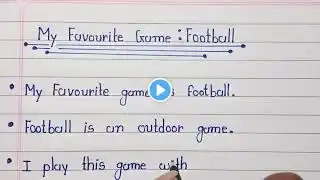 My Favourite Game : Football
• My Favourite game is football.
• Football is an outdoor game.
• I play this game with